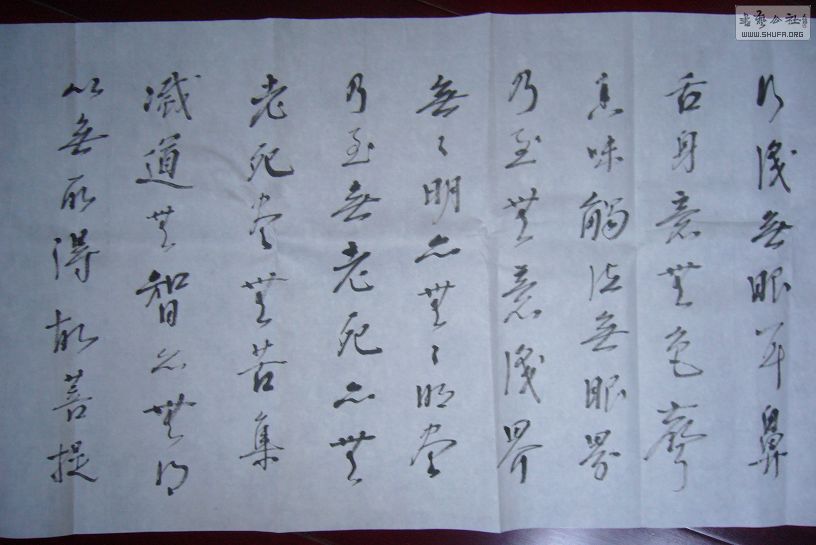 行識無眼耳鼻
舌身意無色聲
香味觸法無眼界
乃至無意識界
無〻明亦無〻明盡
乃至無老死亦無
老死盡無苦集
滅道無智亦無得
以無所得故菩提
書藝公社
WWW.SHUFA.ORG